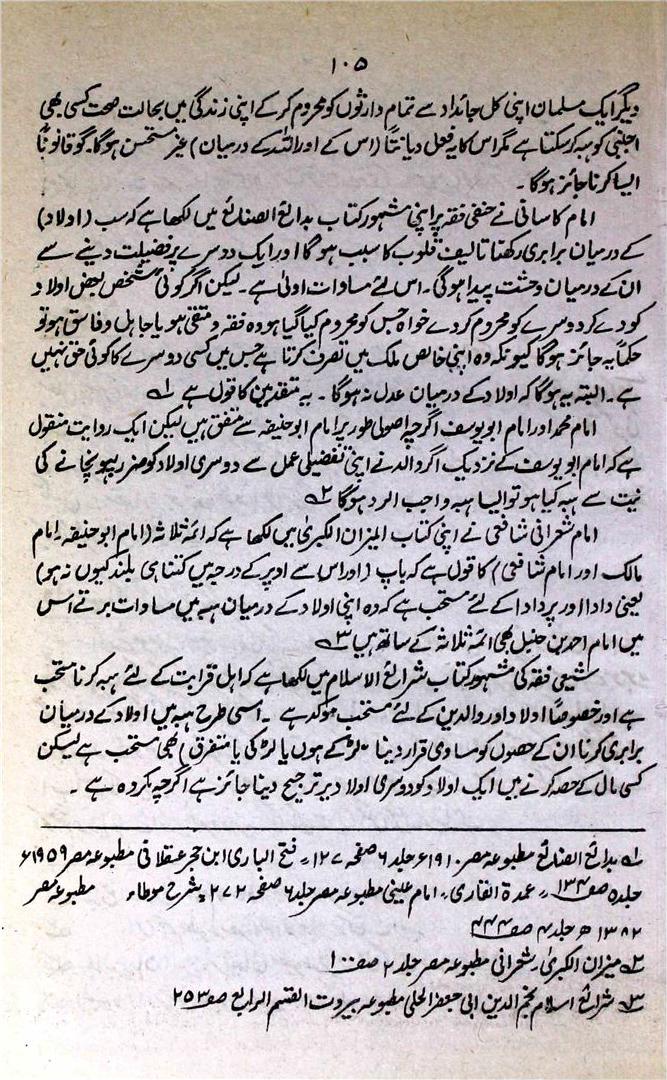 ۱۰۵
دیگر ایک مسلمان اپنی کل جائداد سے تمام وارثوں کو محروم کر کے اپنی زندگی میں بحالت صحت کسی بھی
اجنبی کو ہبہ کر سکتا ہے مگر اس کا یہ فعل دیانتاً (اس کے اور اللہ کے درمیان) غیر مستحسن ہوگا۔ گو قانوناً
ایسا کرنا جائز ہوگا۔
امام کاسانی نے حنفی فقہ پر اپنی مشہور کتاب بدائع الصنائع میں لکھا ہے کہ سب (اولاد)
کے درمیان برابری رکھنا تالیف قلوب کا سبب ہوگا اور ایک دوسرے پر فضیلت دینے سے
ان کے درمیان وحشت پیدا ہوگی۔ اس لئے مساوات اولیٰ ہے۔ لیکن اگر کوئی شخص بعض اولاد
کو دے کر دوسرے کو محروم کر دے خواہ جس کو محروم کیا گیا ہو وہ فقہ و متقی ہو یا جاہل و فاسق ہو تو
حکماً یہ جائز ہوگا کیونکہ وہ اپنی خالص ملک میں تصرف کرتا ہے جس میں کسی دوسرے کا کوئی حق نہیں
ہے۔ البتہ یہ ہوگا کہ اولاد کے درمیان عدل نہ ہوگا۔ یہ متقدمین کا قول ہے ؂۱
امام محمد اور امام ابو یوسف اگرچہ اصولی طور پر امام ابو حنیفہ سے متفق ہیں لیکن ایک روایت منقول
ہے کہ امام ابو یوسف کے نزدیک اگر والد نے اپنی تفضیلی عمل سے دوسری اولاد کو ضرر پہونچانے کی
نیت سے ہبہ کیا ہو تو ایسا ہبہ واجب الرد ہوگا ؂۲
امام شعرانی شافعی نے اپنی کتاب المیزان الکبریٰ میں لکھا ہے کہ ائمہ ثلاثہ (امام ابو حنیفہ۔ امام
مالک اور امام شافعی) کا قول ہے کہ باپ (اور اس سے اوپر کے درجہ میں کتنا ہی بلند کیوں نہ ہو)
یعنی دادا اور پردادا کے لئے مستحب ہے کہ وہ اپنی اولاد کے درمیان ہبہ میں مساوات برتے اس
میں امام احمد بن حنبل بھی ائمہ ثلاثہ کے ساتھ ہیں ؂۳
شیعی فقہ کی مشہور کتاب شرائع الاسلام میں لکھا ہے کہ اہل قرابت کے لئے ہبہ کرنا مستحب
ہے اور خصوصاً اولاد اور والدین کے لئے مستحب موکد ہے۔ اسی طرح ہبہ میں اولاد کے درمیان
برابری کرنا ان کے حصوں کو مساوی قرار دینا (لڑکے ہوں یا لڑکی یا متفرق) بھی مستحب ہے لیکن
کسی مال کے حصہ کرنے میں ایک اولاد کو دوسری اولاد پر ترجیح دینا جائز ہے اگرچہ مکروہ ہے۔
؂۱ بدائع الصنائع مطبوعہ مصر ۱۹۱۰ء جلد ۶ صفحہ ۱۲۷۔ فتح الباری ابن حجر عسقلانی مطبوعہ مصر ۱۹۵۹ء
جلد ۵ صفـ ۱۳۴۔ عمدۃ القاری۔ امام عینی مطبوعہ مصر جلد ۶ صفحہ ۲۷۲۔ شرح موطاء مطبوعہ مصر
۱۳۸۲ھ جلد ۴ صفـ ۴۴۴
؂۲ میزان الکبریٰ۔ شعرانی مطبوعہ مصر جلد ۲ صفـ ۱۰۰
؂۳ شرائع اسلام نجم الدین ابی جعفر الحلی مطبوعہ بیروت القسم الرابع صفـ ۲۵۳